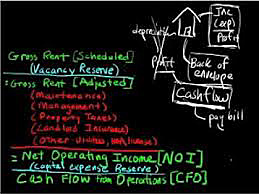 Gross Rent [Scheduled]
(Vacancy Reserve)
= Gross Rent [Adjusted]
(Maintenance)
(Management)
(Property Taxes)
(Landlord Insurance)
(Other Utilities,
= Net Operating Income [NOI]
(Capital Expense Reserve)
Cash Flow from Operations [CFO]
Inc
(exp)
Profit
depreciation
Profit
Back of
envelope
Cashflow
pay bill